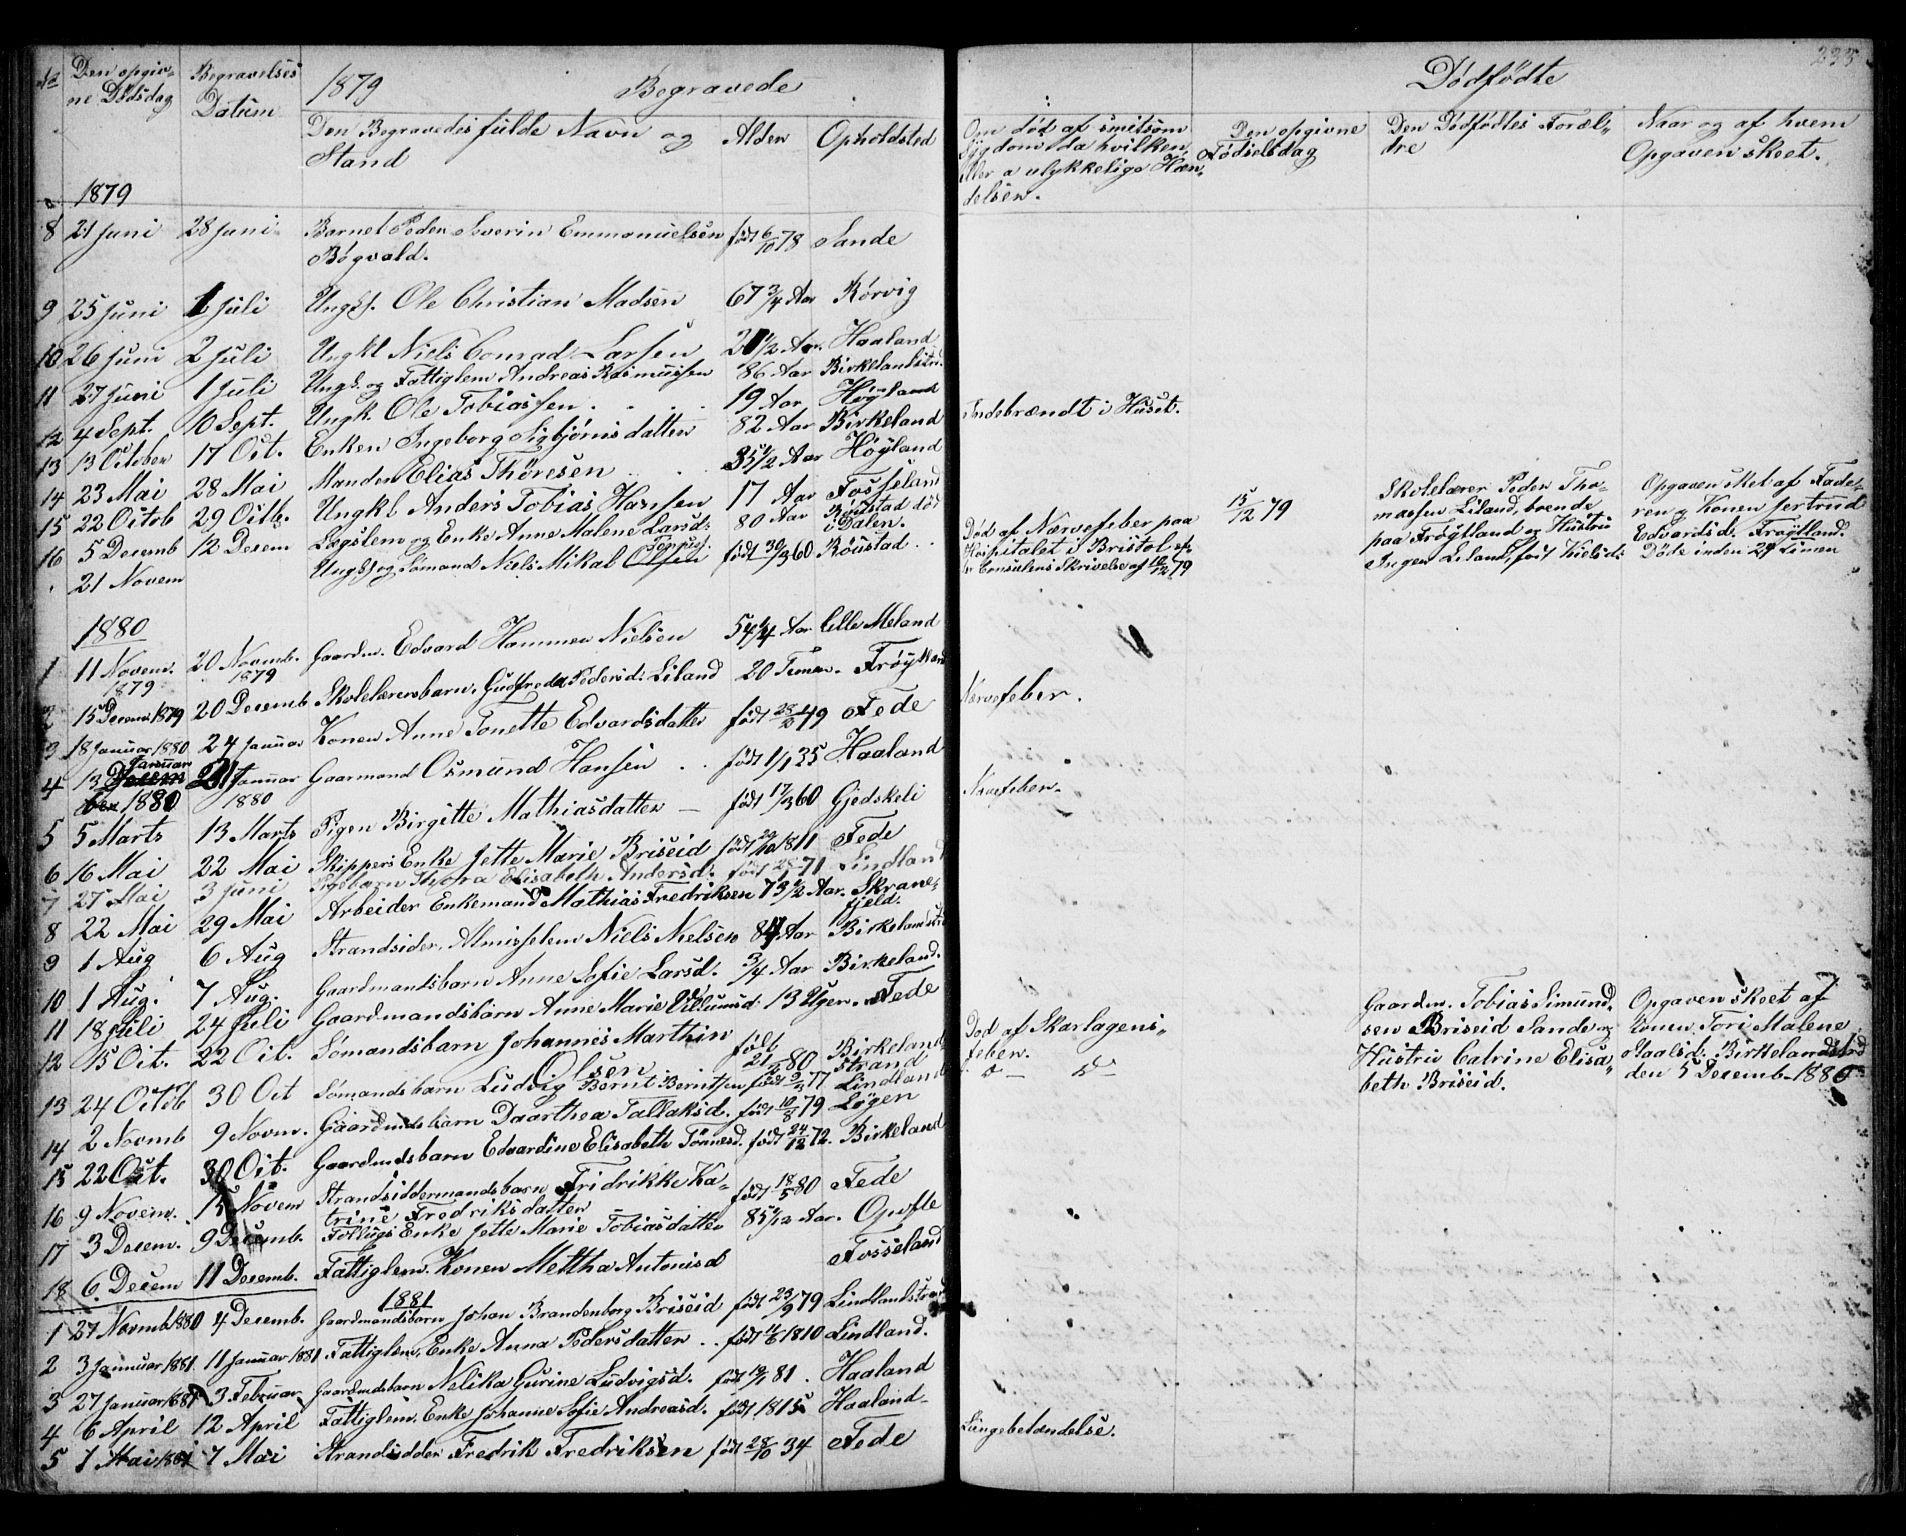 No Den opgiv- Begravelses 1879 Begravede
ne Dödsdag Datum
Den Begravedes fulde Navn og Alder Opholdsted
Stand
1879
8 21 Juni 28 Juni Barnet Peder Severin Emmanuelsen født 6/10 78 Sande
Bøgvald.
9 25 Juni 1 Juli Ungk. Ole Christian Madsen 67 3/4 Aar Rørvig
10 26 Juni 2 Juli Ungkl Niels Conrad Larsen 20 1/2 Aar. Haaland
11 27 Juni 1 Juli Ungk. og Fattiglem Andreas Rasmussen 86 Aar Birkelandstrd.
12 4 Sept. 10 Sept. Ungk. Ole Tobiassen . . . . 19 Aar Høyland
13 13 October 17 Oct. Enken Ingeborg Sigbjørnsdatter 82 Aar Birkeland
14 23 Mai 28 Mai Manden Elias Thøresen . . . 35 1/2 Aar Høyland
15 22 Octob 29 Octb. Ungkl Anders Tobias Hansen 17 Aar Fosseland
16 5 Decemb 12 Decem Lægslem og Enke Anne Malene Larsd: 80 Aar Røustad død
i Dalen.
. 21 Novem Ungk og Sømand Niels Mikal Olsen født 30/3 60 Røustad . .
1880
1 11 Novem. 20 Novmb. Gaardm. Edvard Hammer Nielsen 54 1/4 Aar Lille Meland
1879 1879
2 15 Decem 1879 20 Decemb Skolelærersbarn. Gudfreda Pedersd: Liland 20 Timer. Frøytland
3 18 Januar 1880 24 Januar Konen Anne Tonette Edvardsdatter født 28/10 49 Fede
4 13 Januar 21 Januar Gaarmand Osmund Hansen . . født 1/1 35 Haaland
1880 1880
5 5 Marts 13 Marts Pigen Birgitte Mathiasdatter — født 17/3 60 Gjedskeli
6 16 Mai 22 Mai Skippers Enke Jette Marie Briseid født 29/10 1811 Fede
7 27 Mai 3 Juni Pigebarn Thora Elisabeth Andersd. født 28/1 71 Lindland
8 22 Mai 29 Mai Arbeider Enkemand Mathias Fredriksen 73 1/2 Aar. Skrane-
fjeld.
9 1 Aug 6 Aug Strandsider. Almisselem Niels Nielsen 84 Aar Birkelandstrd
10 1 Aug. 7 Aug. Gaardmandsbarn Anne Sofie Larsd. 3/4 Aar Birkeland.
11 18 Juli 24 Juli Gaardmandsbarn Anne Marie Villumsd: 13 Uger. Fede
12 15 Oct. 22 Oct. Sømandsbarn Johannes Marthin født Birkeland
Olsen 21/2 80 strand
13 24 Octob 30 Oct Sømandsbarn Ludvig Bernt Berntsen født 9/4 77 Lindland
14 2 Novmb 9 Novm. Gaardmdsbarn Daarthea Tallaksd. født 10/8 79 Løgen
15 22 Oct. 30 Oct. Gaardmdsbarn Edvardine Elisabeth Tønnesd. født 24/12 72. Birkeland
16 9 Novem. 15 Novem Strandsiddermandsbarn Fridrikke Ka- født 18/5 80 Fede
trine Fredriksdatter
17 3 Decem. 9 Decemb. Follugs Enke Jette Marie Tobiasdatter 85 1/12 Aar. Opofte
18 6 Decem 11 Decemb. Fattiglem. Konen Mettha Antonisd Fosseland
1881
1 27 Novmb 1880 4 Decemb. Gaardmandsbarn Johan Brandenborg Briseid født 23/9 79 Lindlandstrand
2 3 Januar 1881. 11 Januar 1881 Fattiglem, Enke Anna Pedersdatter . . født 11/6 1810 Lindland.
3 27 Januar 1881 3 Februar Gaardmdsbarn Nelika Gurine Ludvigsd. født 19/1 81 . Haaland
4 6 April 12 April Fattiglem. Enke Johanne Sofie Andreasd. født 1815 Haaland.
5 1 Mai 1881 7 Mai Strandsidder Fredrik Fredriksen født 28/10 34 Fede
235
Dødfødte
Om død af smitsom
Sygdom da hvilken
eller a ulykkelige Hæn-
delser.
Den opgivne
Fødselsdag
Den Dødfødtes Foræl-
dre
Naar og af hvem
Opgaven skeet.
Indebrændt i Huset.
Død af Nærvefeber paa
Hospitalet i Bristol ef-
ter Consulens Skrivelse af 10/12 79
15/12 79
Skolelærer Peder Tho-
massen Liland, boende
paa Frøytland og Hustru
Inger Liland, født Nielsd:
Opgaven sket af Fade-
ren og Konen Jertrud
Edvardsd. Frøytland.
Døte inden 24 Timer
Nærvefeber.
Nærvefeber.
Død af Skarlagens-
feber.
Do — Do
Gaardm. Tobias Simund-
sen Briseid Sande og
Hustru Catrine Elisa-
beth Briseid.
Opgaven skeet af
Konen Tori Malene
Birkelandstrd
den 5 Decemb 1880
Lungebetændelse.